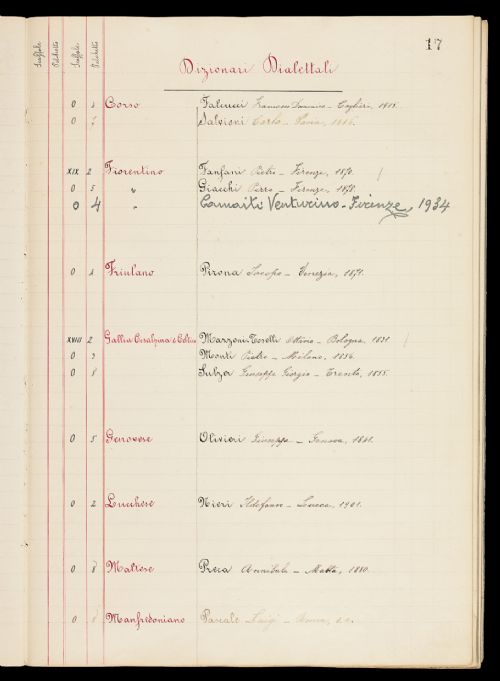 17
Scaffale Palchetto Scaffale Palchetto
Dizionari Dialettali
Corso Falcucci Francesco Domenico - Cagliari, 1915.
0 7 Salvioni Carlo - Pavia, 1916.
XIX 2 Fiorentino Fanfani Pietro - Firenze, 1870.
0 5 " Giacchi Pirro - Firenze, 1878.
0 4 " Camaiti Venturino - Firenze, 1934
Friulano Pirona Jacopo - Venezia, 1871.
XVIII 2 Gallica Cisalpina e Celtico Mazzoni-Toselli Ottavio - Bologna, 1831.
0 3 Monti Pietro - Milano, 1856.
0 8 Sulzer Giuseppe Giorgio - Trento, 1855.
0 5 Genovese Olivieri Giuseppe - Genova, 1841.
0 2 Lucchese Nieri Idelfonso - Lucca, 1901.
0 8 Maltese Preca Annibale - Malta, 1880.
0 8 Manfredoniano Pascale Luigi